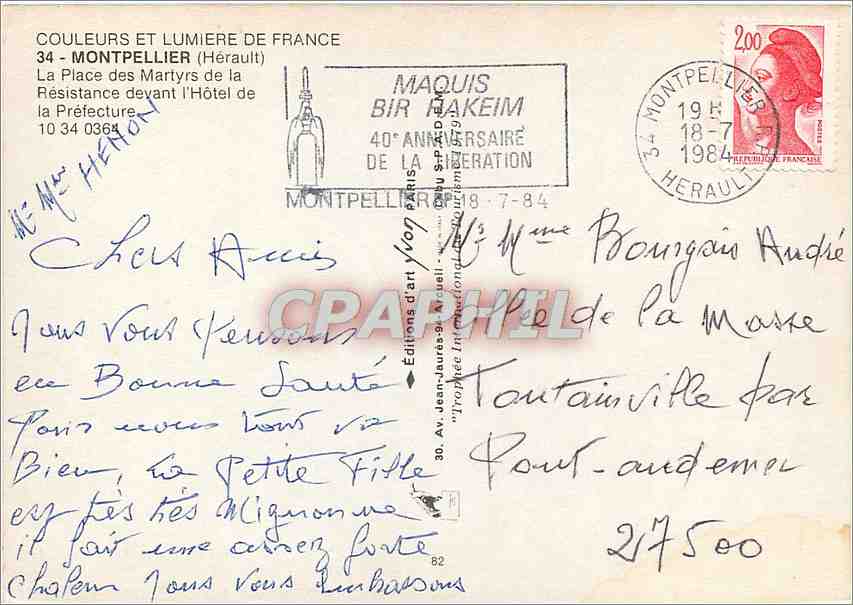 COULEURS ET LUMIERE DE FRANCE
34 - MONTPELLIER (Hérault)
La Place des Martyrs de la
Résistance devant l'Hôtel de
la Préfecture
10 34 0364
Mr Mme HENON
MAQUIS
BIR HAKEIM
40e ANNIVERSAIRE
DE LA LIBERATION
MONTPELLIER RP 18-7-84
34 MONTPELLIER R.P.
19H
18-7
1984
HERAULT
2,00
POSTES
REPUBLIQUE FRANÇAISE
Chers Amis
Nous Vous Pensons
en Bonne Santé
Pour nous tout va
Bien, La Petite Fille
est très très Mignonne
il fait une assez forte
Chaleur Nous vous Embrassons
Éditions d'art yvon PARIS
30. Av. Jean-Jaurès-94 Arcueil - S.P.A.D.E.M.
"Trophée International du Tourisme 1979"
82
Mr Mme Bourgais André
de la Masse
Toutainville par
Pont-audemer
27500
CPAPHIL